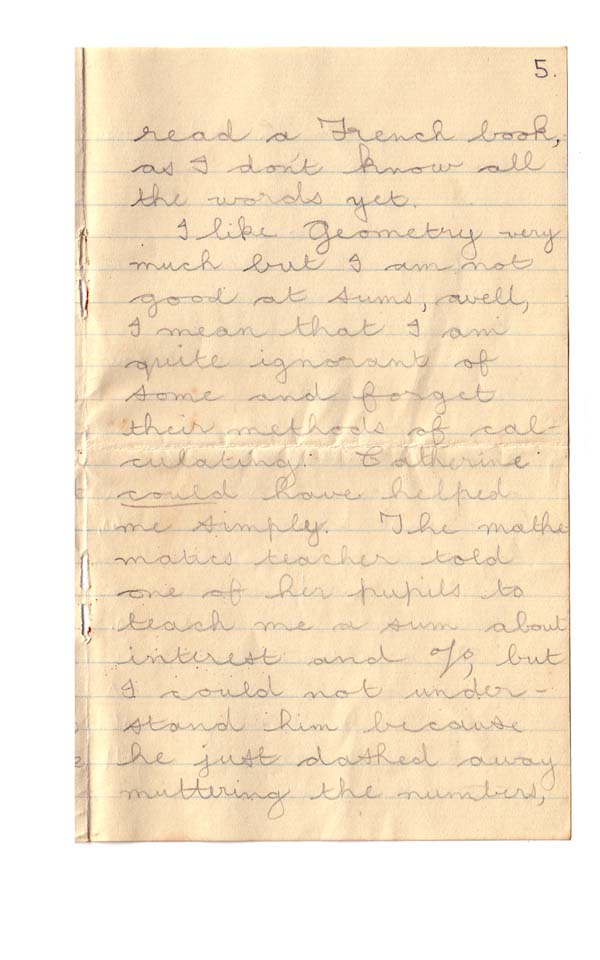 5.
read a French book,
as I don't know all
the words yet.
I like Geometry very
much but I am not
good at sums, avell,
I mean that I am
quite ignorant of
some and forget
their methods of cal-
culating. Catherine
could have helped
me simply. The mathe
matics teacher told
one of her pupils to
teach me a sum about
interest and %, but
I could not under-
stand him because
he just dashed away
muttering the numbers,